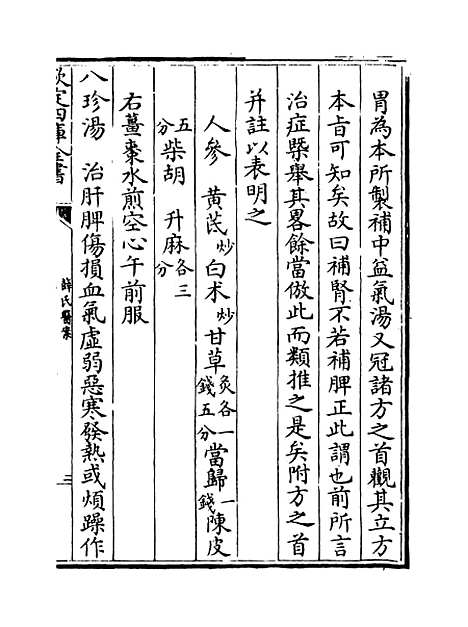 胃為本所製補中益氣湯又冠諸方之首觀其立方
本旨可知矣故曰補腎不若補脾正此謂也前所言
治症槩舉其畧餘當倣此而類推之是矣附方之首
并註以表明之
人參　黄茋炒白术炒甘草炙各一錢五分當歸一錢陳皮
五分柴胡　升麻各三分
右薑棗水煎空心午前服
八珍湯　治肝脾傷損血氣虛弱惡寒發熱或煩躁作
欽定四庫全書
薛氏醫案
三